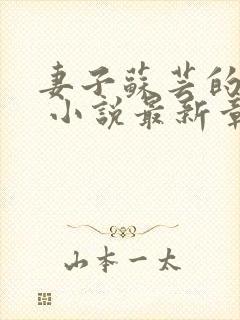 妻子蘇芸的
小說最新章
山本一太